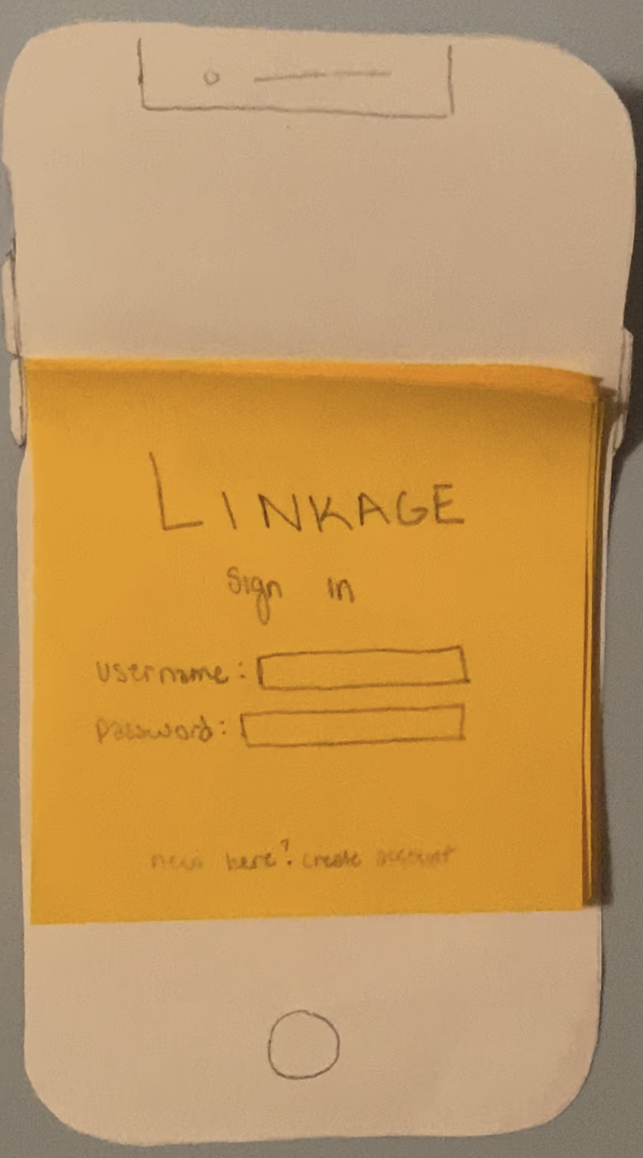 LINKAGE
Sign in
username:
password:
new here? create account